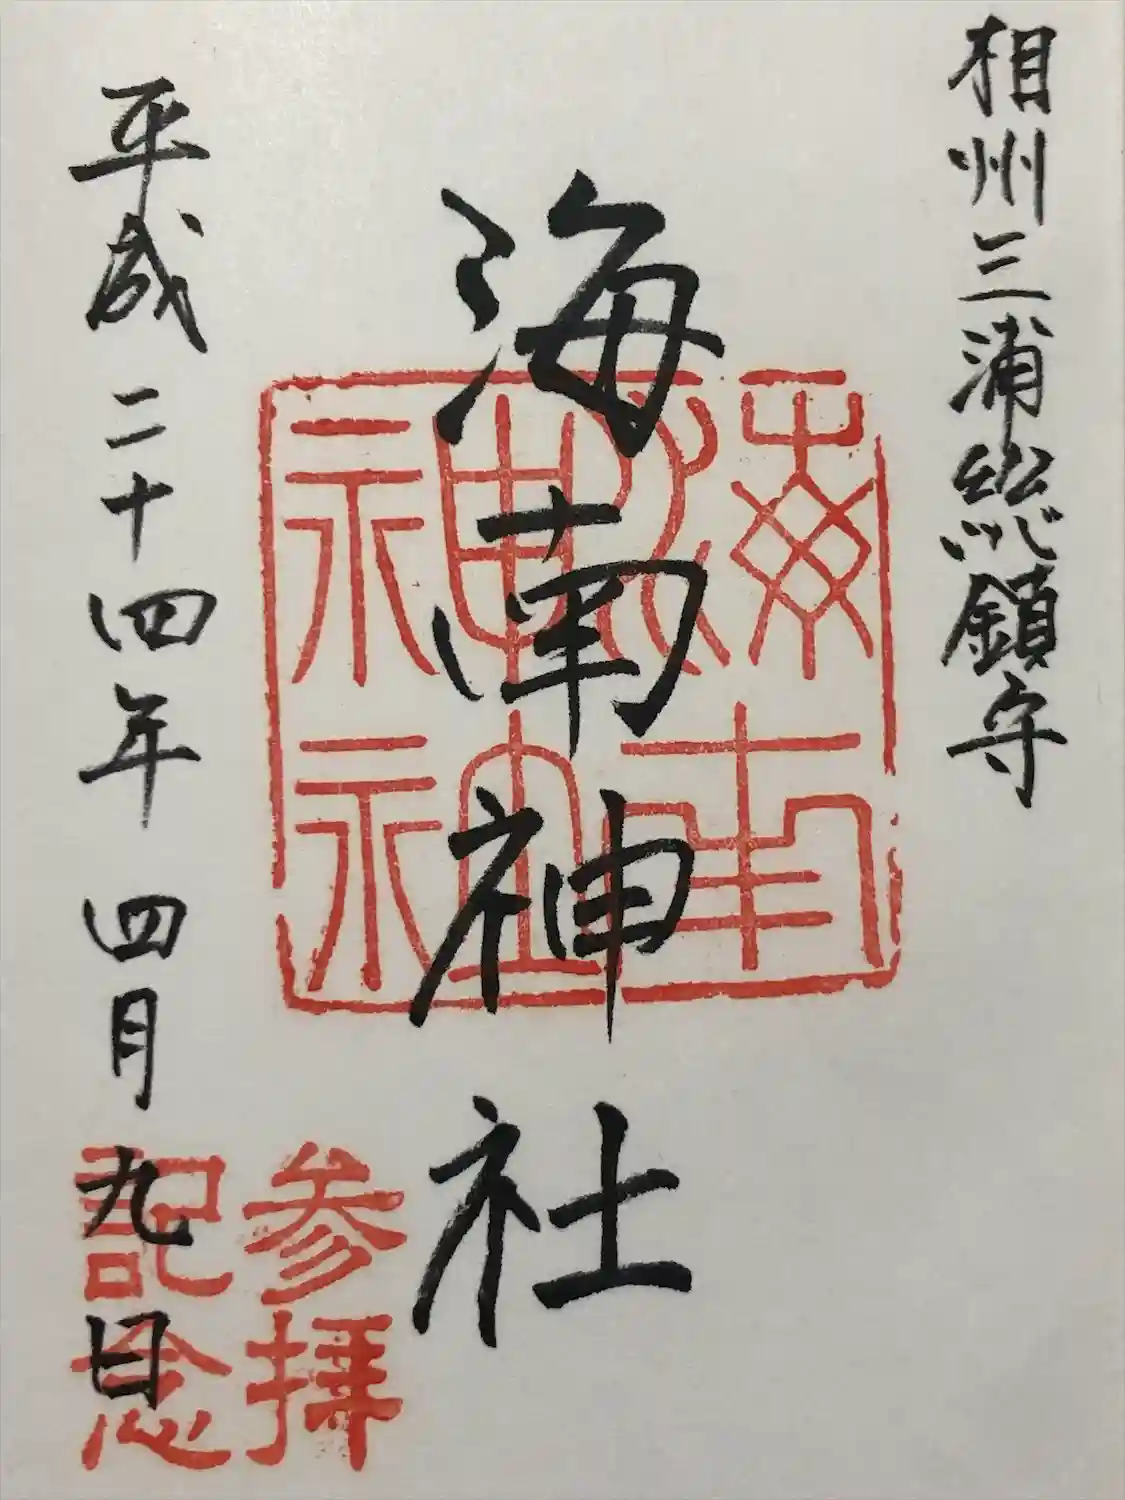 相州三浦総鎮守
海南神社
海南神社
参拝記念
平成二十四年四月九日